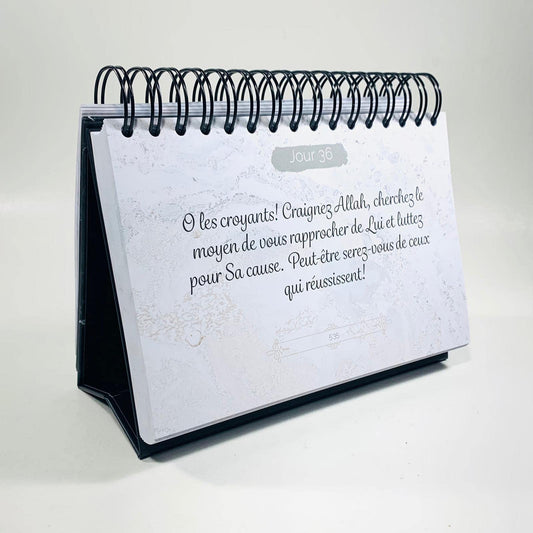 Jour 36
O les croyants! Craignez Allah, cherchez le
moyen de vous rapprocher de Lui et luttez
pour Sa cause. Peut-être serez-vous de ceux
qui réussissent!
5:35